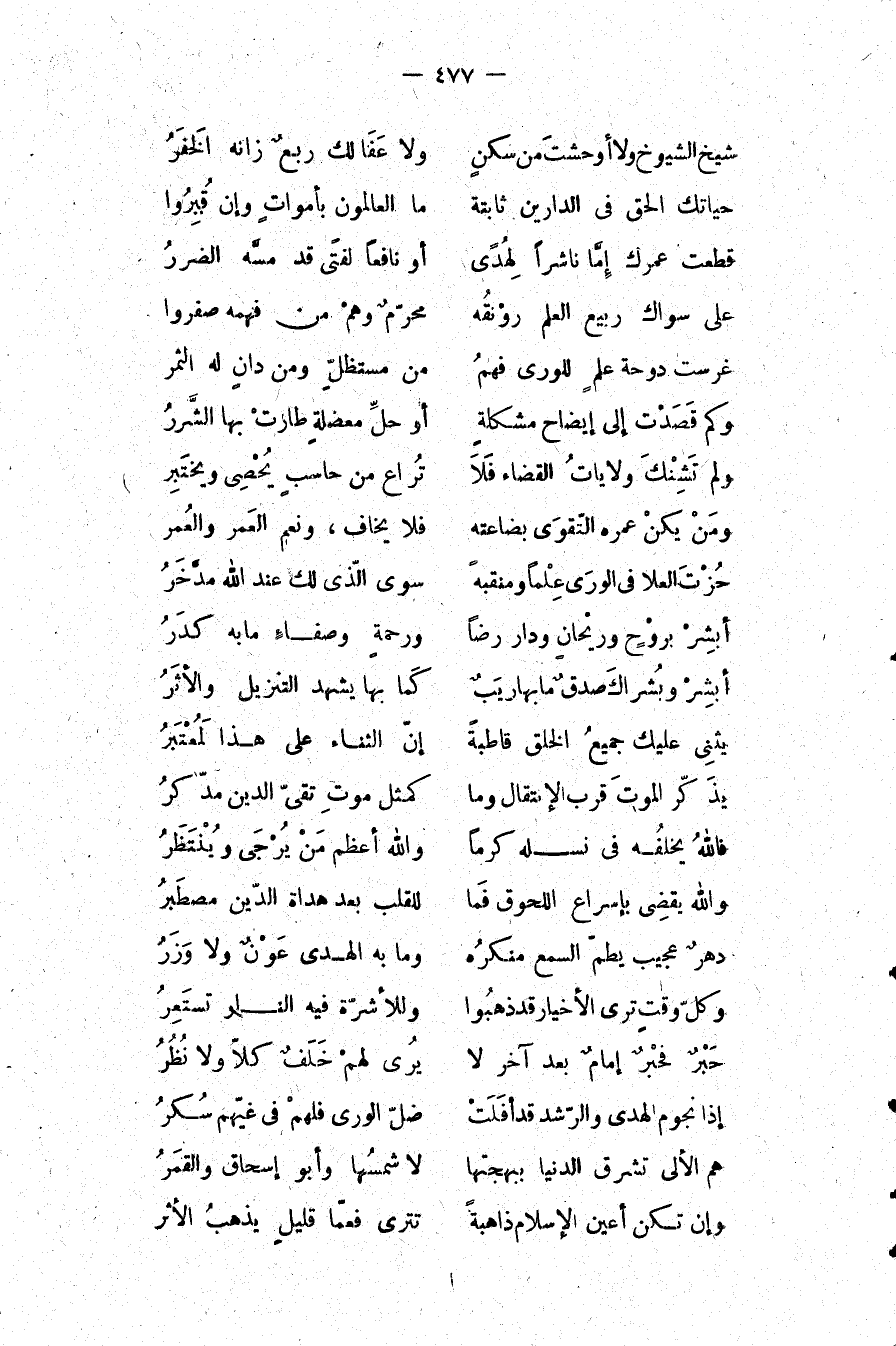 — ٤٧٧ —
شيخ الشيوخ ولا أوحشتَ من سكنٍ ولا عَفَا لك ربعٌ زانه الخَفَرُ
حياتك الحق فى الدارين ثابتة ما العالمون بأمواتٍ وإن قُبِرُوا
قطعت عمرك إمَّا ناشراً لِهُدًى أو نافعاً لفتًى قد مسَّه الضررُ
على سواك ربيع العلم روْنقُه محرّمٌ وهمْ من فهمه صفروا
غرست دوحة علمٍ للورى فهمُ من مستظلٍّ ومن دانٍ له الثمر
وكم قَصَدْت إلى إيضاح مشكلةٍ أو حلِّ معضلةٍ طارتْ بها الشَّررُ
ولم تَشِنْكَ ولاياتُ القضاء فَلَا تُراع من حاسبٍ يُحْصِى ويختَبِر
ومَنْ يكنْ عمره التّقوَى بضاعته فلا يخاف ، ونعم العَمر والعُمر
حُزْتَ العلا فى الورَى عِلْماً ومنقبه سوى الّذى لك عند الله مدَّخَرُ
أبشِرْ بروْحٍ وريْحانٍ ودار رضاً ورحمةٍ وصفاءِ مابه كدَرُ
أبشِرْ وبُشراكَ صدقٌ مابها ريَبٌ كَما بها يشهد التنزيل والأثَرُ
يثنِى عليك جميعُ الخلق قاطبةً إنّ الثناء على هذا لَمُعْتَبَرُ
يذَكّر الموتَ قرب الإنتقال وما كمثل موتِ تقىّ الدين مدّكرُ
فاللهُ يخلفُه فى نسله كرماً والله أعظم مَنْ يُرْجَى ويُنْتَظَرُ
والله يقضِى بإسراع اللحوق فَما للقلب بعد هداة الدّين مصطَبرُ
دهرٌ عجيب يطمّ السمع منكرُه وما به الهدى عَوْنٌ ولا وَزَرُ
وكلّ وقتٍ ترى الأخيار قد ذهبُوا وللأشرّة فيه النار تستَعِرُ
حَبْرٌ فحَبْرٌ إمامٌ بعد آخر لا يُرى لهمْ خَلَفٌ كلاّ ولا نُظُرُ
إذا نجوم الهدى والرّشد قد أفَلَتْ ضلّ الورى فلهمْ فى غيّهم سُكرُ
هم الألى تشرق الدنيا ببهجتها لا شمسُها وأبو إسحاق والقمَرُ
وإن تكن أعين الإسلام ذاهبةً تترى فعمّا قليلٍ يذهبُ الأثر